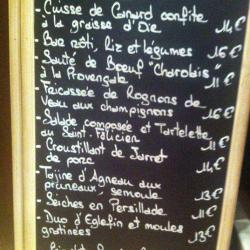 - Cuisse de Canard confite
à la graisse d'Oie 14€
- Bar rôti, riz et légumes 16€
- Sauté de Bœuf "Charolais"
à la Provençale 11€
- Fricassée de Rognons de
Veau aux champignons 16€
- Salade composée et Tartelette
au Saint-Félicien 11€
- Croustillant de Jarret
de porc 14€
- Tajine d'Agneau aux
pruneaux - semoule 13€
- Seiches en Persillade 11€
- Duo d'Eglefin et moules
gratinées 13€